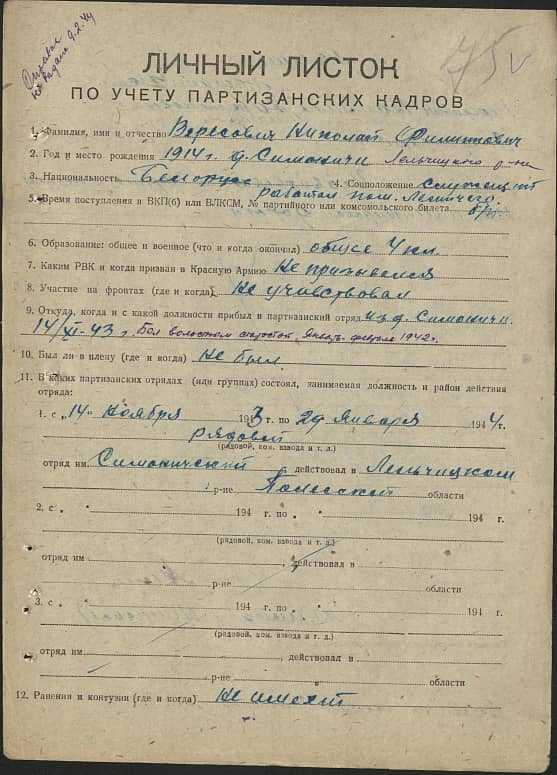 Справка
не выдана 9.2.44
75 v
ЛИЧНЫЙ ЛИСТОК
ПО УЧЕТУ ПАРТИЗАНСКИХ КАДРОВ
1. Фамилия, имя и отчество Вересович Николай Филиппович
2. Год и место рождения 1914 г. д. Симоничи Лельчицкого р-на
3. Национальность Белорус 4. Соцположение служащий
работал пом. Лесничего
5. Время поступления в ВКП(б) или ВЛКСМ, № партийного или комсомольского билета б/п
6. Образование: общее и военное (что и когда окончил) общее 4 кл.
7. Каким РВК и когда призван в Красную Армию Не призывался
8. Участие на фронтах (где и когда) Не учавствовал
9. Откуда, когда и с какой должности прибыл в партизанский отряд из д. Симоничи
14/XI-43 г. Был волостным Январь февраль 1942 г.
10. Был ли в плену (где и когда) Не был
11. В каких партизанских отрядах (или группах) состоял, занимаемая должность и район действия
отряда:
1. с „14" Ноября 1943 г. по 29 Января 1944 г.
рядовой
(рядовой, ком. взвода и т. д.)
отряд им. Симоничский, действовал в Лельчицком
р-не Полесской области
2. с „ " 194 г. по „ " 194 г.
(рядовой, ком. взвода и т. д.)
отряд им , действовал в
р-не области
3. с „ " 194 г. по „ " 194 г.
(рядовой, ком. взвода и т. д.)
отряд им. , действовал в
р-не области
12. Ранения и контузии (где и когда) Не имеет